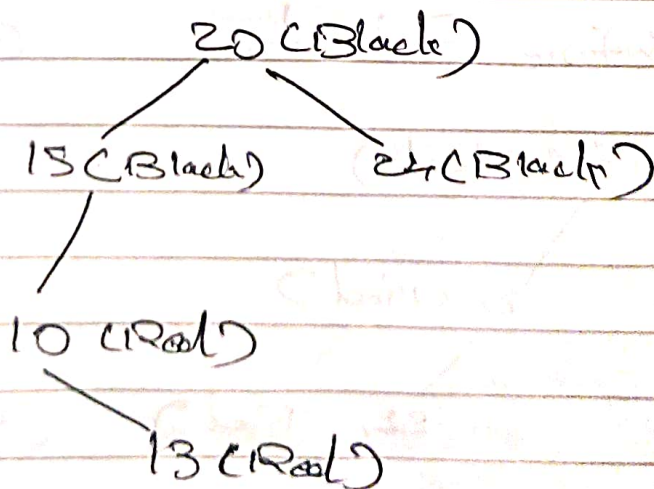 20 (Black)
15 (Black) 24 (Black)
10 (Red)
13 (Red)